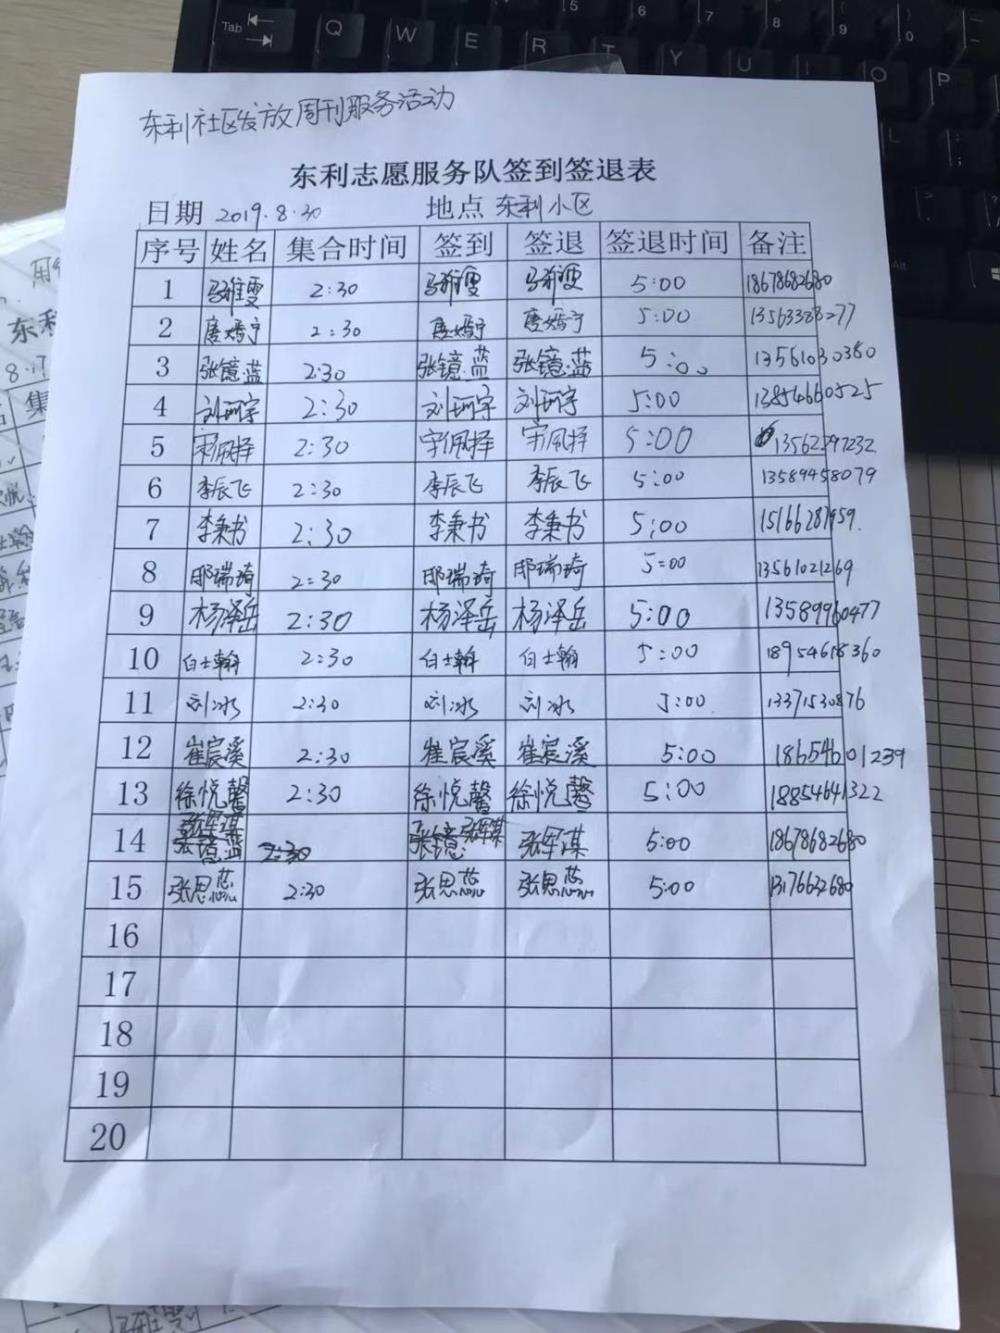 东利社区发放周刊服务活动
东利志愿服务队签到签退表
日期 2019.8.30 地点 东利小区
序号 姓名 集合时间 签到 签退 签退时间 备注
1 马雅雯 2:30 马雅雯 马雅雯 5:00 18678682680
2 唐嫣宁 2:30 唐嫣宁 唐嫣宁 5:00 13563388277
3 张镱蓝 2:30 张镱蓝 张镱蓝 5:00 13561030380
4 刘珂宇 2:30 刘珂宇 刘珂宇 5:00 13854660525
5 宋佩择 2:30 宋佩择 宋佩择 5:00 13562297232
6 李辰飞 2:30 李辰飞 李辰飞 5:00 13589458079
7 李秉书 2:30 李秉书 李秉书 5:00 15166281959.
8 邴瑞琦 2:30 邴瑞琦 邴瑞琦 5:00 13561021269
9 杨泽岳 2:30 杨泽岳 杨泽岳 5:00 13589960477
10 白士翰 2:30 白士翰 白士翰 5:00 18954618360
11 刘冰 2:30 刘冰 刘冰 5:00 13371530876
12 崔宸溪 2:30 崔宸溪 崔宸溪 5:00 18654601239
13 徐悦馨 2:30 徐悦馨 徐悦馨 5:00 18854641322
14 2:30 张军谋 5:00 18678682680
15 张思蕊 2:30 张思蕊 张思蕊 5:00 13176632680
16
17
18
19
20